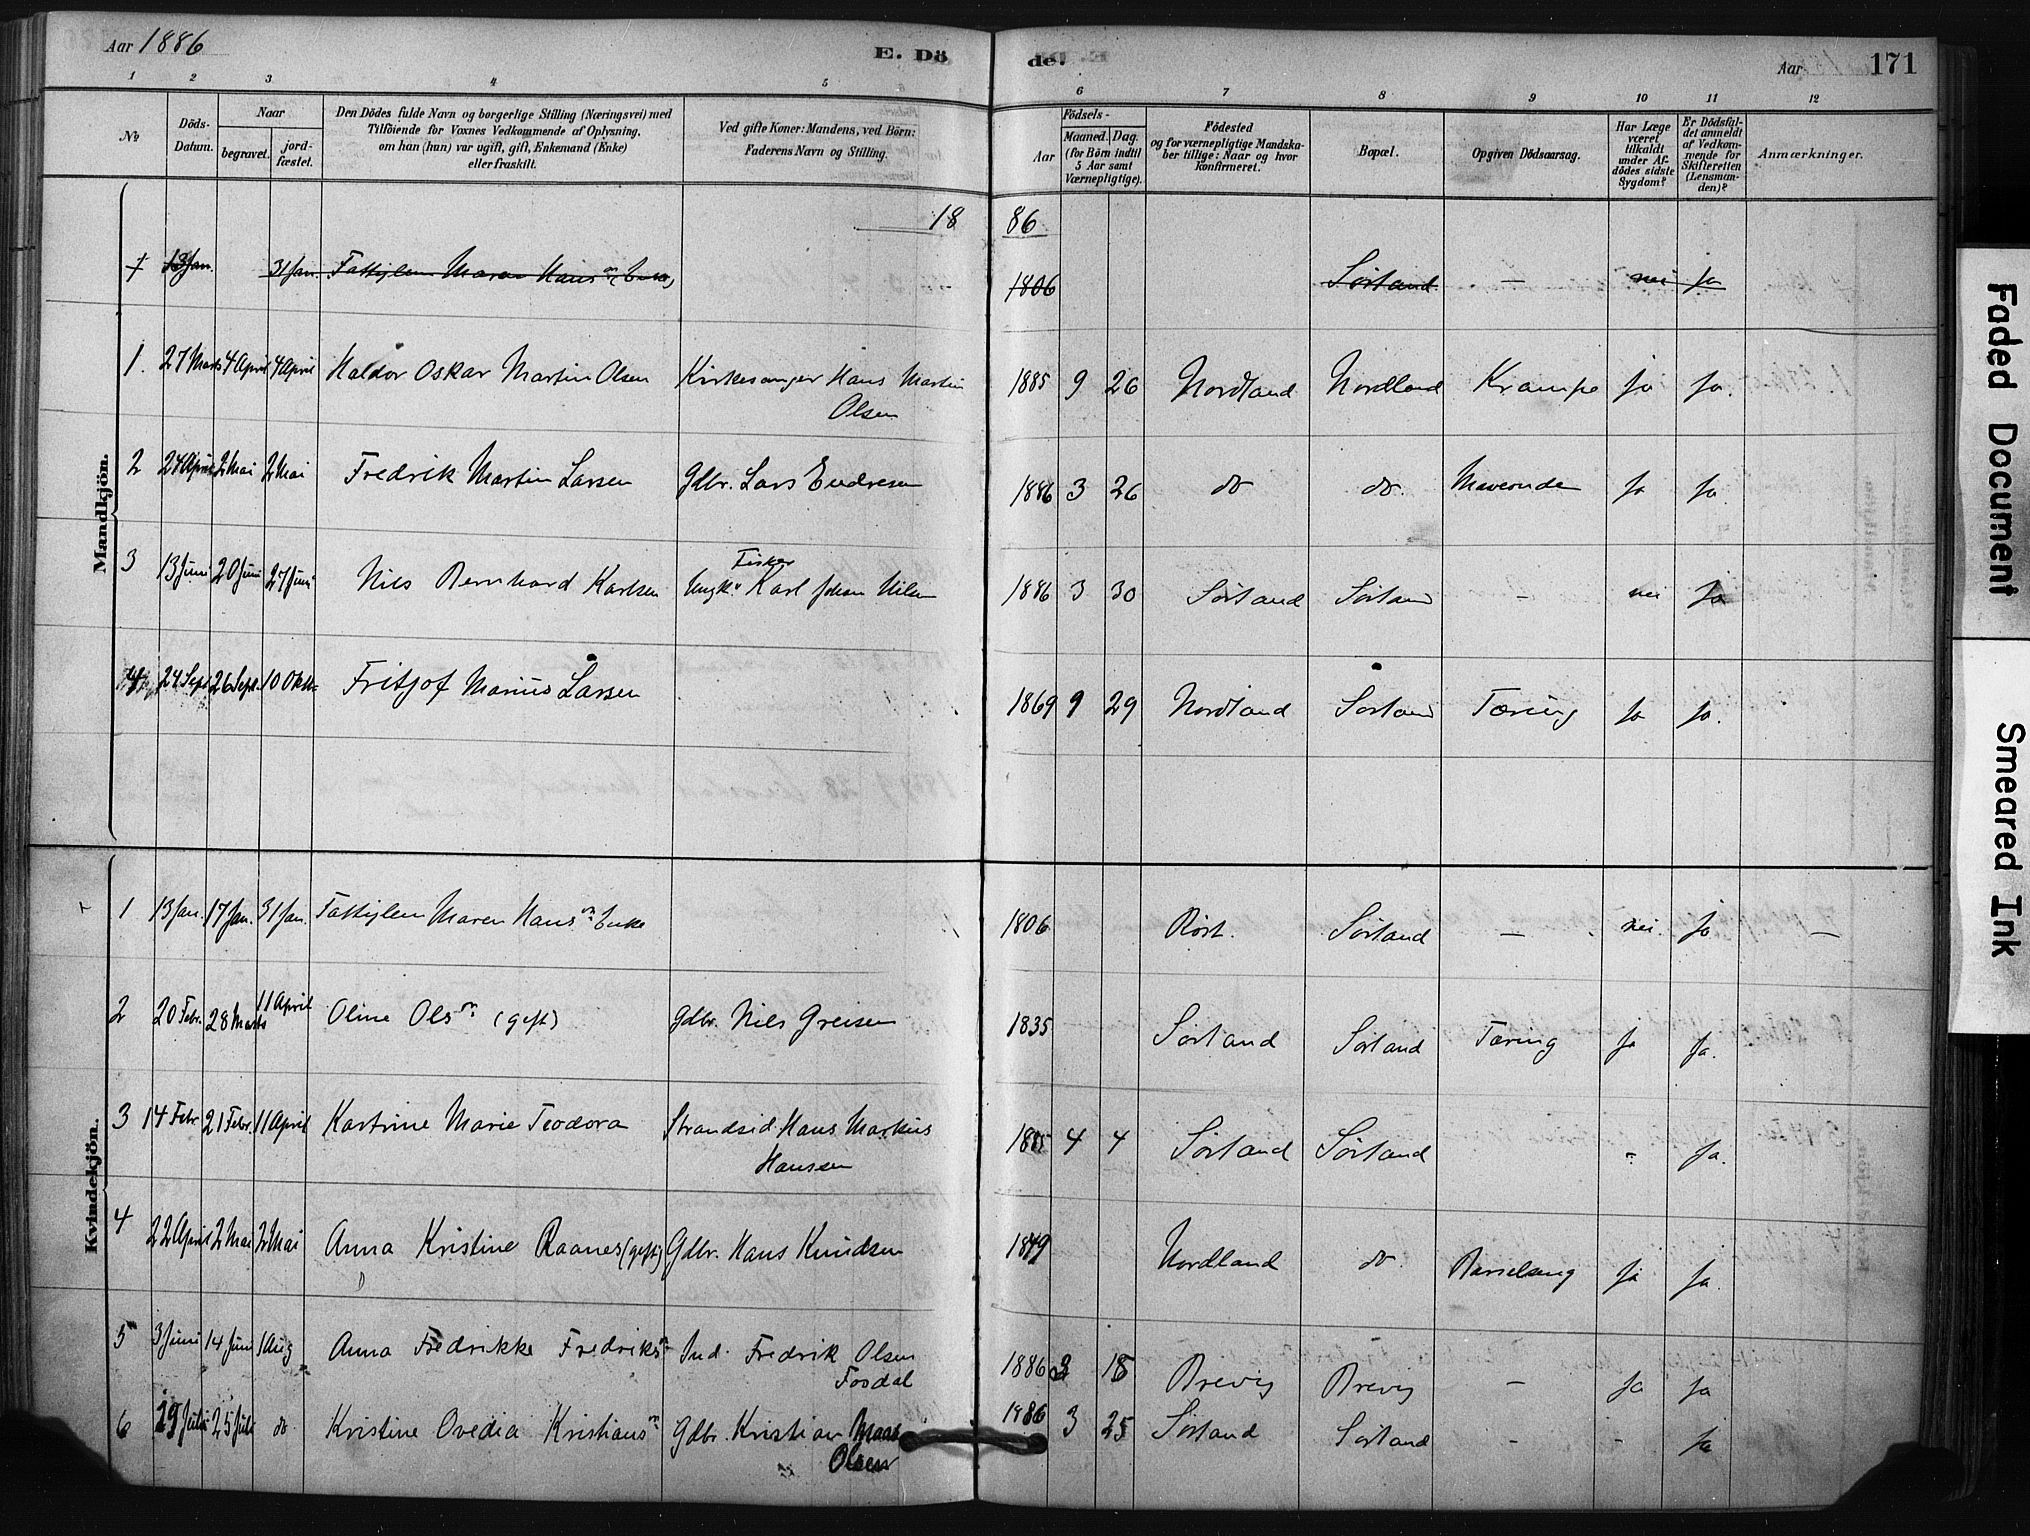 Aar 1886
E. Dö
de.
Aar
171
1 2 3 4 5 6 7 8 9 10 11 12
No
Döds-
Datum.
Naar
begravet.
jord-
fæstet.
Den Dödes fulde Navn og borgerlige Stilling (Næringsvei) med
Tilföiende for Voxnes Vedkommende af Oplysning,
om han (hun) var ugift, gift, Enkemand (Enke)
eller fraskilt.
Ved gifte Koner: Mandens, ved Börn:
Faderens Navn og Stilling.
Födsels-
Aar
Maaned.
Dag.
(for Börn indtil
5 Aar samt
Værnepligtige).
Födested
og for værnepligtige Mandska-
ber tillige: Naar og hvor
konfirmeret.
Bopæl.
Opgiven Dödsaarsag.
Har Læge
været
tilkaldt
under Af-
dödes sidste
Sygdom?
Er Dödsfal-
det anmeldt
af Vedkom-
mende for
Skifteretten
(Lensman-
den)?
Anmærkninger.
Mandkjön.
18 86
1 13 Jan. 31 Jan. Fattiglem Maren Hansn (Enke) 1806 Sörland — nei ja
1. 27 Marts 4 April 4 April Haldor Oskar Martin Olsen Kirkesanger Hans Martin 1885 9 26 Nordland Nordland Krampe ja ja.
Olsen
2 24 April 2 Mai 2 Mai Fredrik Martin Larsen Gdbr. Lars Endresen 1886 3 26 do do. Maveonde ja ja
Fisker
3 13 Juni 20 Juni 27 Juni Nils Bernhard Karlsen Ungk. Karl Johan Nilsen 1886 3 30 Sörland Sörland — nei ja
4 24 Sept 26 Sept. 10 Oktb. Fritjof Marius Larsen 1869 9 29 Nordland Sörland Tæring ja ja.
Kvindekjön.
1 13 Jan. 17 Jan. 31 Jan. Fattiglem Maren Hansn Enke 1806 Röst. Sörland — nei. ja —
2 20 Febr. 28 Marts 11 April Oline Olsn (gift) Gdbr. Nils Greisen 1835 Sörland Sörland Tæring ja ja.
3 14 Febr 21 Febr. 11 April Kartrine Marie Teodora Strandsid. Hans Markus 1885 4 4 Sörland Sörland - ja.
Hanssen
4 22 April 2 Mai 2 Mai Anna Kristine Raanes (gift) Gdbr. Hans Knudsen 1849 Nordland do. Barselseng ja ja.
5 3 Juni 14 Juni 1 Aug Anna Fredrikke Fredriksn Ind. Fredrik Olsen 1886 3 18 Brevig Brevig — ja ja
Fosdal
6 19 Juli 25 Juli do Kristine Ovedia Kristiansn Gdbr. Kristian 1886 3 25 Sörland Sörland - - ja
Olsen
Faded Document
Smeared Ink